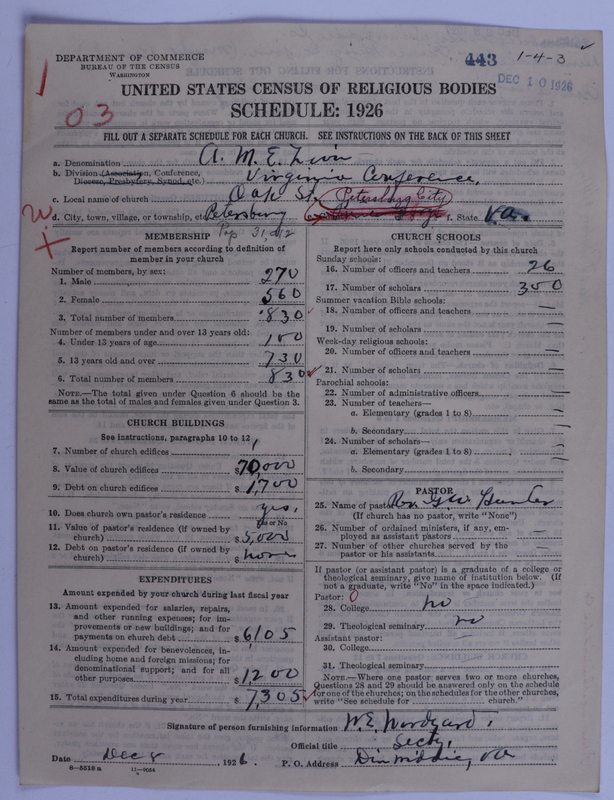 DEPARTMENT OF COMMERCE
BUREAU OF THE CENSUS
WASHINGTON
443 1-4-3
DEC 10 1926
1
03
UNITED STATES CENSUS OF RELIGIOUS BODIES
SCHEDULE: 1926
FILL OUT A SEPARATE SCHEDULE FOR EACH CHURCH. SEE INSTRUCTIONS ON THE BACK OF THIS SHEET
a. Denomination A. M. E. Zion
b. Division (Association, Conference, Diocese, Presbytery, Synod, etc.) Virginia Conference.
c. Local name of church Oak St. Petersburg City
d. City, town, village, or township, etc. Petersburg f. State Va.
MEMBERSHIP
Report number of members according to definition of member in your church
Number of members, by sex:
1. Male 270
2. Female 560
3. Total number of members 830
Number of members under and over 13 years old:
4. Under 13 years of age 100
5. 13 years old and over 730
6. Total number of members 830
NOTE.—The total given under Question 6 should be the same as the total of males and females given under Question 3.
CHURCH BUILDINGS
See instructions, paragraphs 10 to 12
7. Number of church edifices 1
8. Value of church edifices $ 70,000
9. Debt on church edifices $ 1,700
10. Does church own pastor's residence? yes.
Yes or No
11. Value of pastor's residence (if owned by church) $ 5,000
12. Debt on pastor's residence (if owned by church) $ none
EXPENDITURES
Amount expended by your church during last fiscal year
13. Amount expended for salaries, repairs, and other running expenses; for improvements or new buildings; and for payments on church debt $ 6105
14. Amount expended for benevolences, including home and foreign missions; for denominational support; and for all other purposes $ 1200
15. Total expenditures during year $ 7,305
CHURCH SCHOOLS
Report here only schools conducted by this church
Sunday schools:
16. Number of officers and teachers 26
17. Number of scholars 300
Summer vacation Bible schools:
18. Number of officers and teachers —
19. Number of scholars —
Week-day religious schools:
20. Number of officers and teachers —
21. Number of scholars —
Parochial schools:
22. Number of administrative officers —
23. Number of teachers—
a. Elementary (grades 1 to 8) —
b. Secondary —
24. Number of scholars—
a. Elementary (grades 1 to 8) —
b. Secondary —
PASTOR
25. Name of pastor Rev. Geo Hunter
(If church has no pastor, write "None")
26. Number of ordained ministers, if any, employed as assistant pastors —
27. Number of other churches served by the pastor or his assistants —
If pastor (or assistant pastor) is a graduate of a college or theological seminary, give name of institution below. (If not a graduate, write "No" in the space indicated.)
Pastor: 0
28. College no
29. Theological seminary no
Assistant pastor:
30. College —
31. Theological seminary
NOTE.—Where one pastor serves two or more churches, Questions 28 and 29 should be answered only on the schedule for one of the churches; on the schedules for the other churches, write "See schedule for church."
Signature of person furnishing information W. E. Woodyard.
Official title Secty.
Date Dec 8, 1926. P. O. Address Dinwiddie, Va
8—5518 a 11—9054